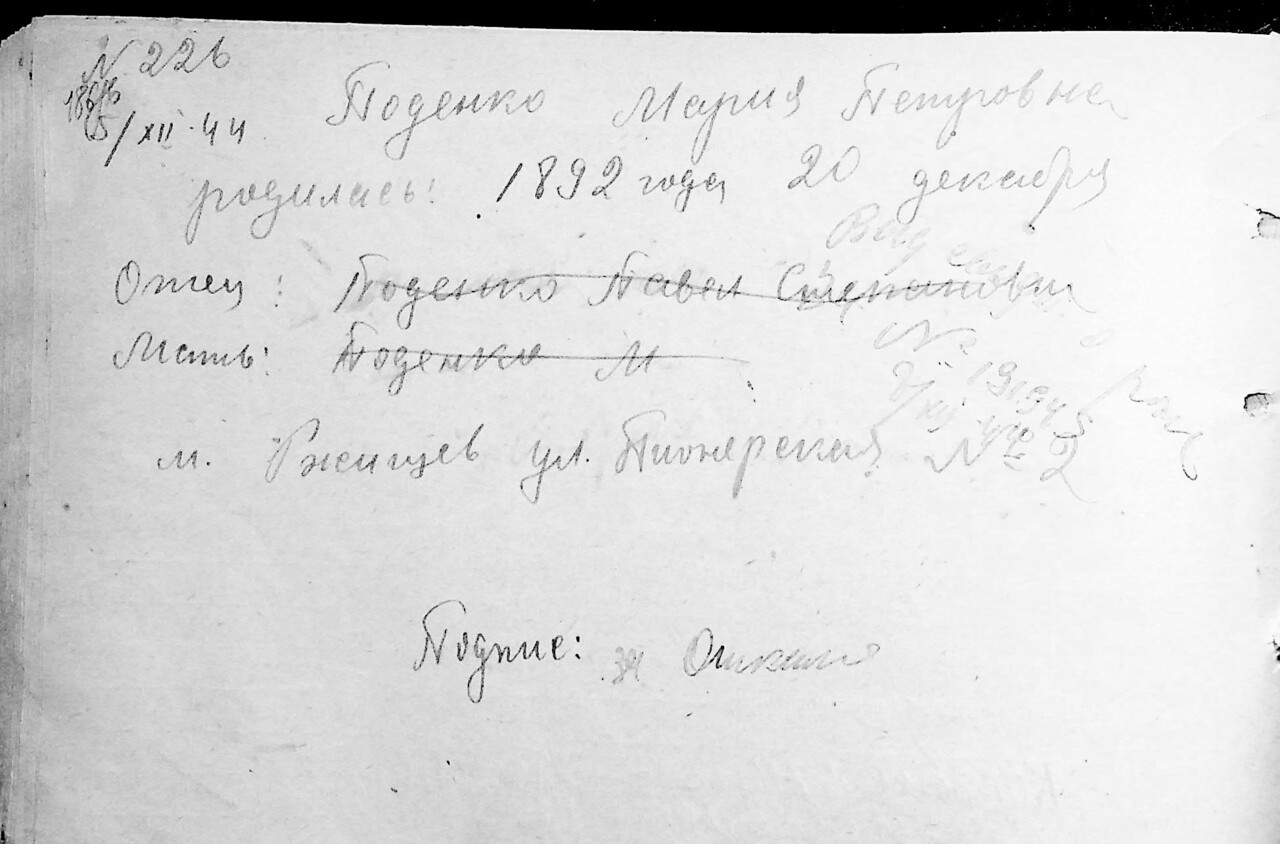 N 226
5/XII·44
Поденко Мария Петровна
родилась: 1892 года 20 декабря
Отец: Поденко Павел Степанович
Мать: Поденко М
м. Ржищев ул. Пионерская N 2
Подпис: за